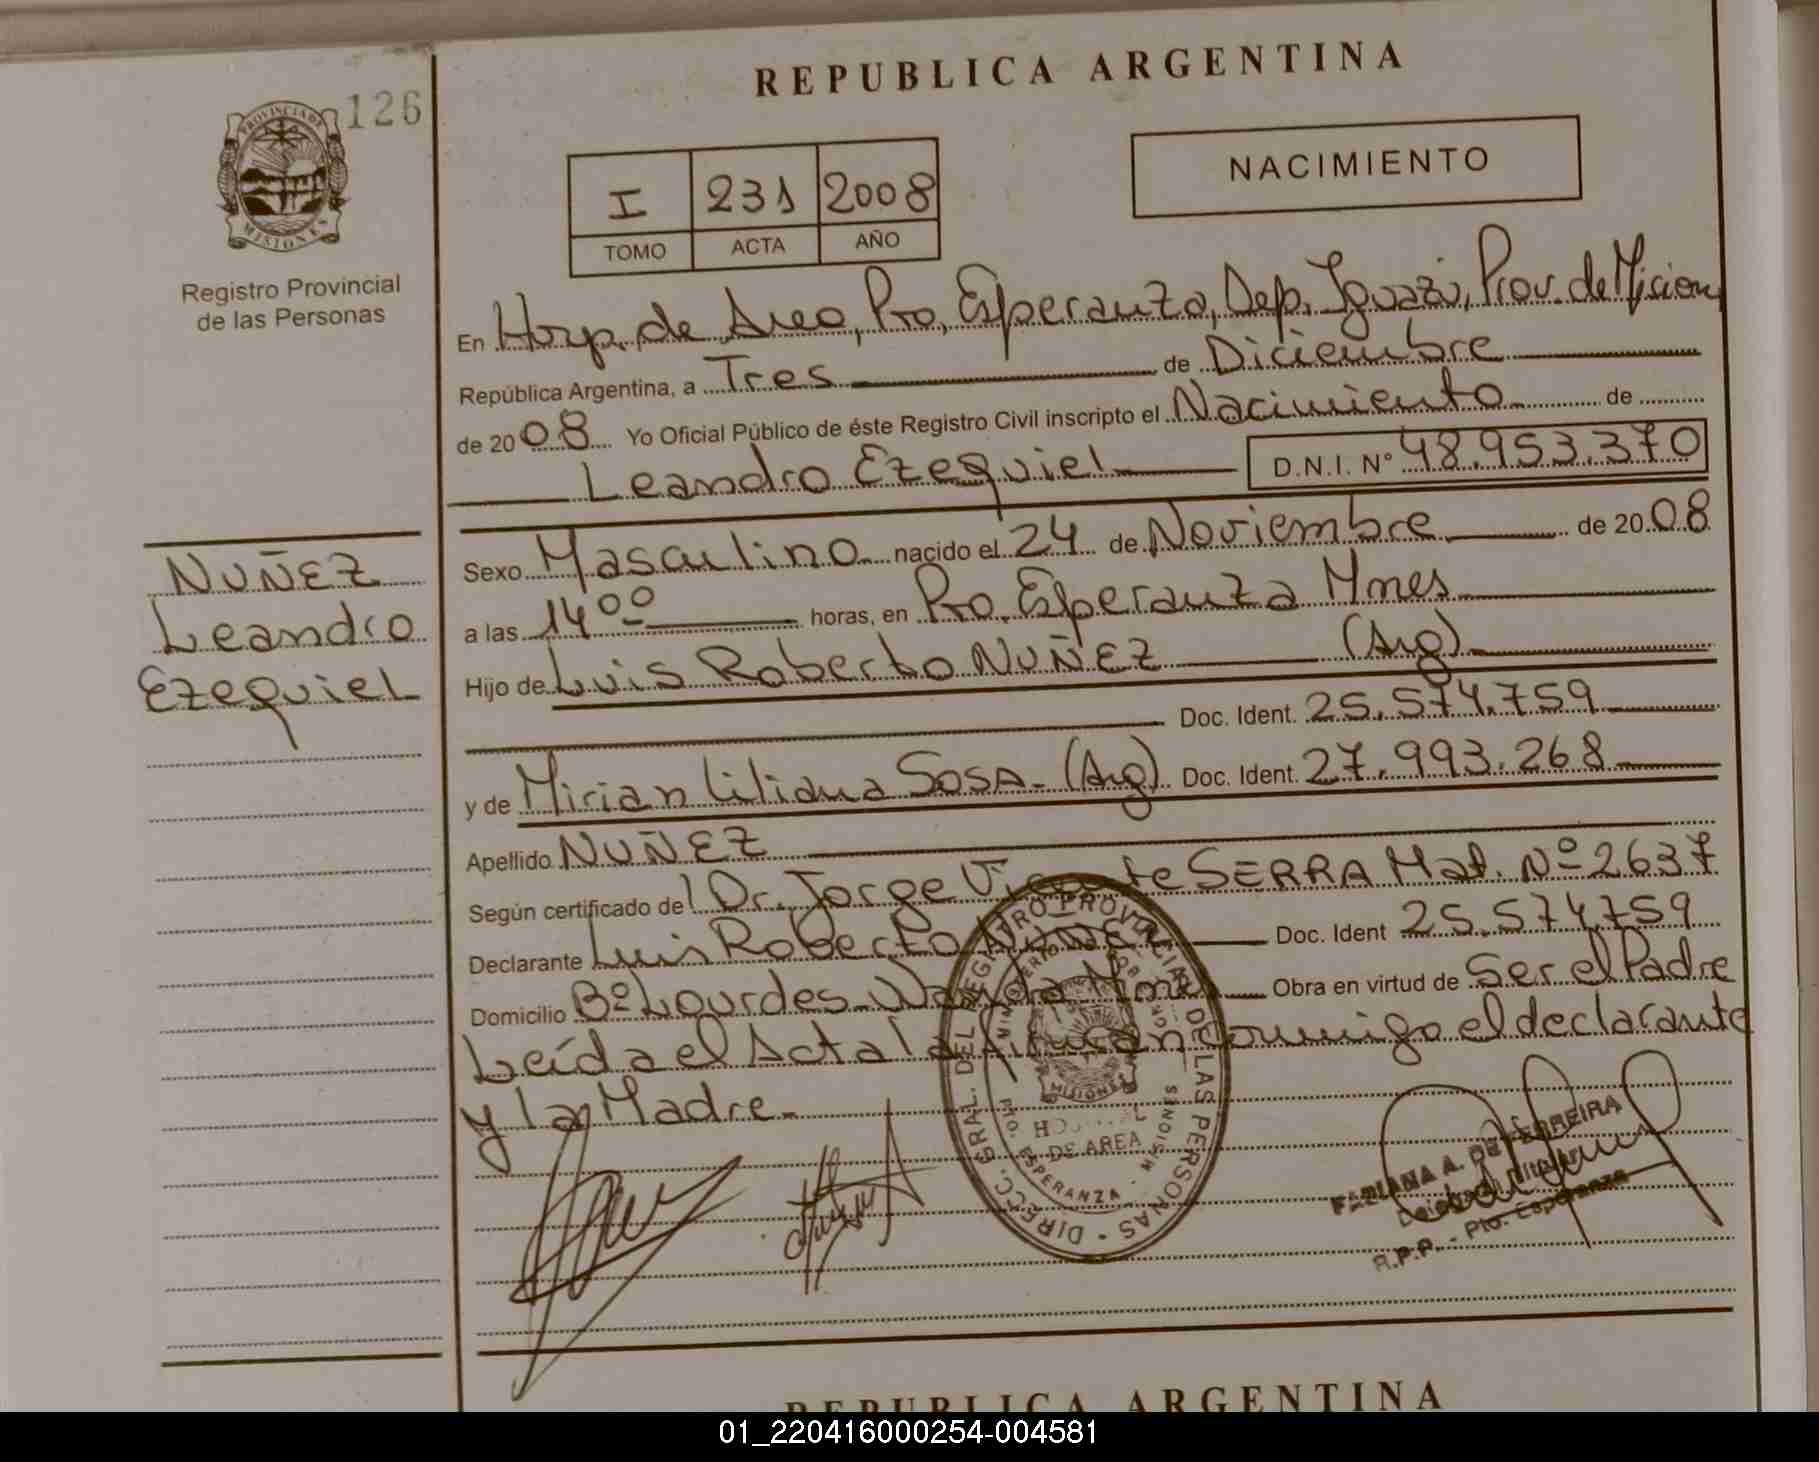 REPUBLICA ARGENTINA
126
PROVINCIA DE
MISIONES
Registro Provincial
de las Personas
NUÑEZ
Leandro
Ezequiel
I 231 2008
TOMO ACTA AÑO
NACIMIENTO
En Hosp. de Area, Pto, Esperanza, Dep. Iguazú, Prov. de Misiones
República Argentina, a Tres de Diciembre
de 2008 Yo Oficial Público de éste Registro Civil inscripto el Nacimiento de
Leandro Ezequiel D.N.I. Nº 48.953.370
Sexo Masculino nacido el 24 de Noviembre de 2008
a las 14 00 horas, en Pto. Esperanza Mnes
Hijo de Luis Roberto NUÑEZ (Arg)
Doc. Ident. 25.574.759
y de Mirian Liliana SOSA - (Arg) Doc. Ident. 27.993.268
Apellido NUÑEZ
Según certificado del Dr. Jorge Vicente SERRA Mat. Nº 2637
Declarante Luis Roberto NUÑEZ Doc. Ident 25.574.759
Domicilio Bº Lourdes - Wanda Mnes Obra en virtud de Ser el Padre
Leída el Acta la firman conmigo el declarante
y la Madre.
DIRECC. GRAL. DEL REGISTRO PROVINCIAL DE LAS PERSONAS
MINISTERIO
MISIONES
DE AREA
PTO. ESPERANZA - MISIONES
FABIANA A. DE FERREIRA
R.P.P. - Pto. Esperanza
REPUBLICA ARGENTINA
01_220416000254-004581